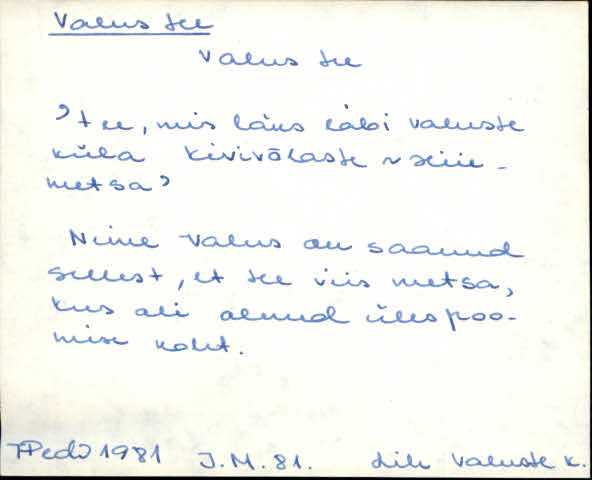 Valus tee
Valus tee
'tee, mis läks läbi Valuste
küla Kivivõlaste
metsa'
Nime Valus on saanud
sellest, et tee viis metsa,
kus oli olnud ülespoo-
mise koht.
1981 J.M. 81. Valuste k.